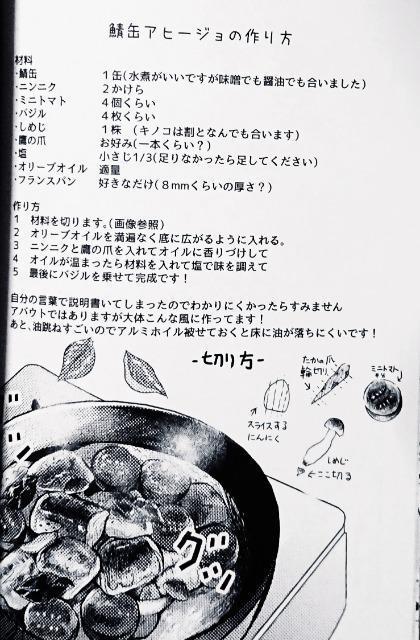 鯖缶アヒージョの作り方
材料
・鯖缶 1缶(水煮がいいですが味噌でも醤油でも合いました)
・ニンニク 2かけら
・ミニトマト 4個くらい
・バジル 4枚くらい
・しめじ 1株 (キノコは割となんでも合います)
・鷹の爪 お好み(一本くらい?)
・塩 小さじ1/3(足りなかったら足してください)
・オリーブオイル 適量
・フランスパン 好きなだけ(8mmくらいの厚さ?)
作り方
1 材料を切ります。(画像参照)
2 オリーブオイルを満遍なく底に広がるように入れる。
3 ニンニクと鷹の爪を入れてオイルに香りづけして
4 オイルが温まったら材料を入れて塩で味を調えて
5 最後にバジルを乗せて完成です!
自分の言葉で説明書いてしまったのでわかりにくかったらすみません
アバウトではありますが大体こんな風に作ってます!
あと、油跳ねすごいのでアルミホイル被せておくと床に油が落ちにくいです!
-切り方-
たかの爪
輪切り
ミニトマト
スライスする
にんにく
しめじ
ここ切る
グツ